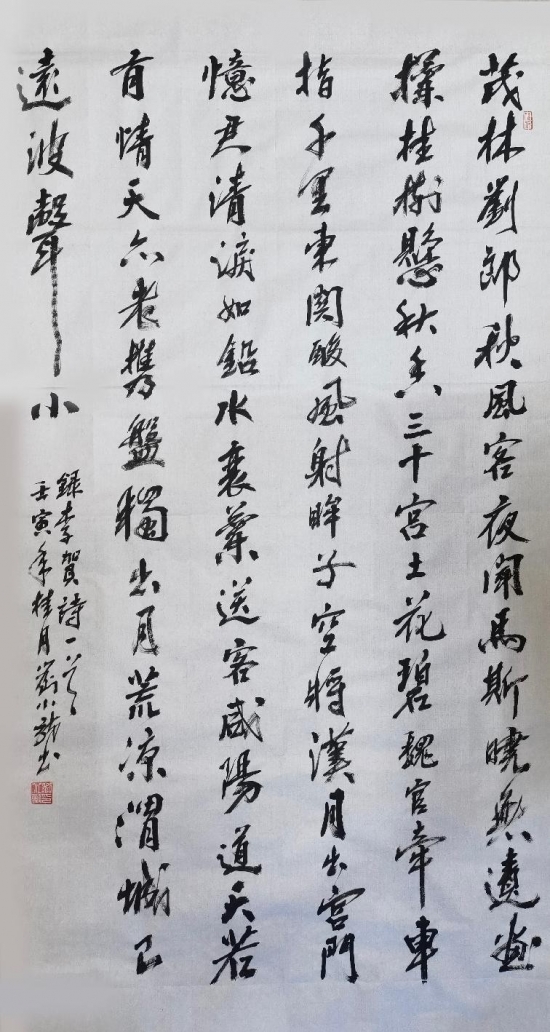 茂林劉郎秋風客夜聞馬斯曉無遺畫
欄桂樹懸秋香三十宮土花碧魏官牽車
指千里東關酸風射眸子空將漢月出宮門
憶君清淚如鉛水衰蘭送客咸陽道天若
有情天亦老攜盤獨出月荒涼渭城已
遠波聲小
錄李賀詩一首
壬寅年桂月劉小龍書